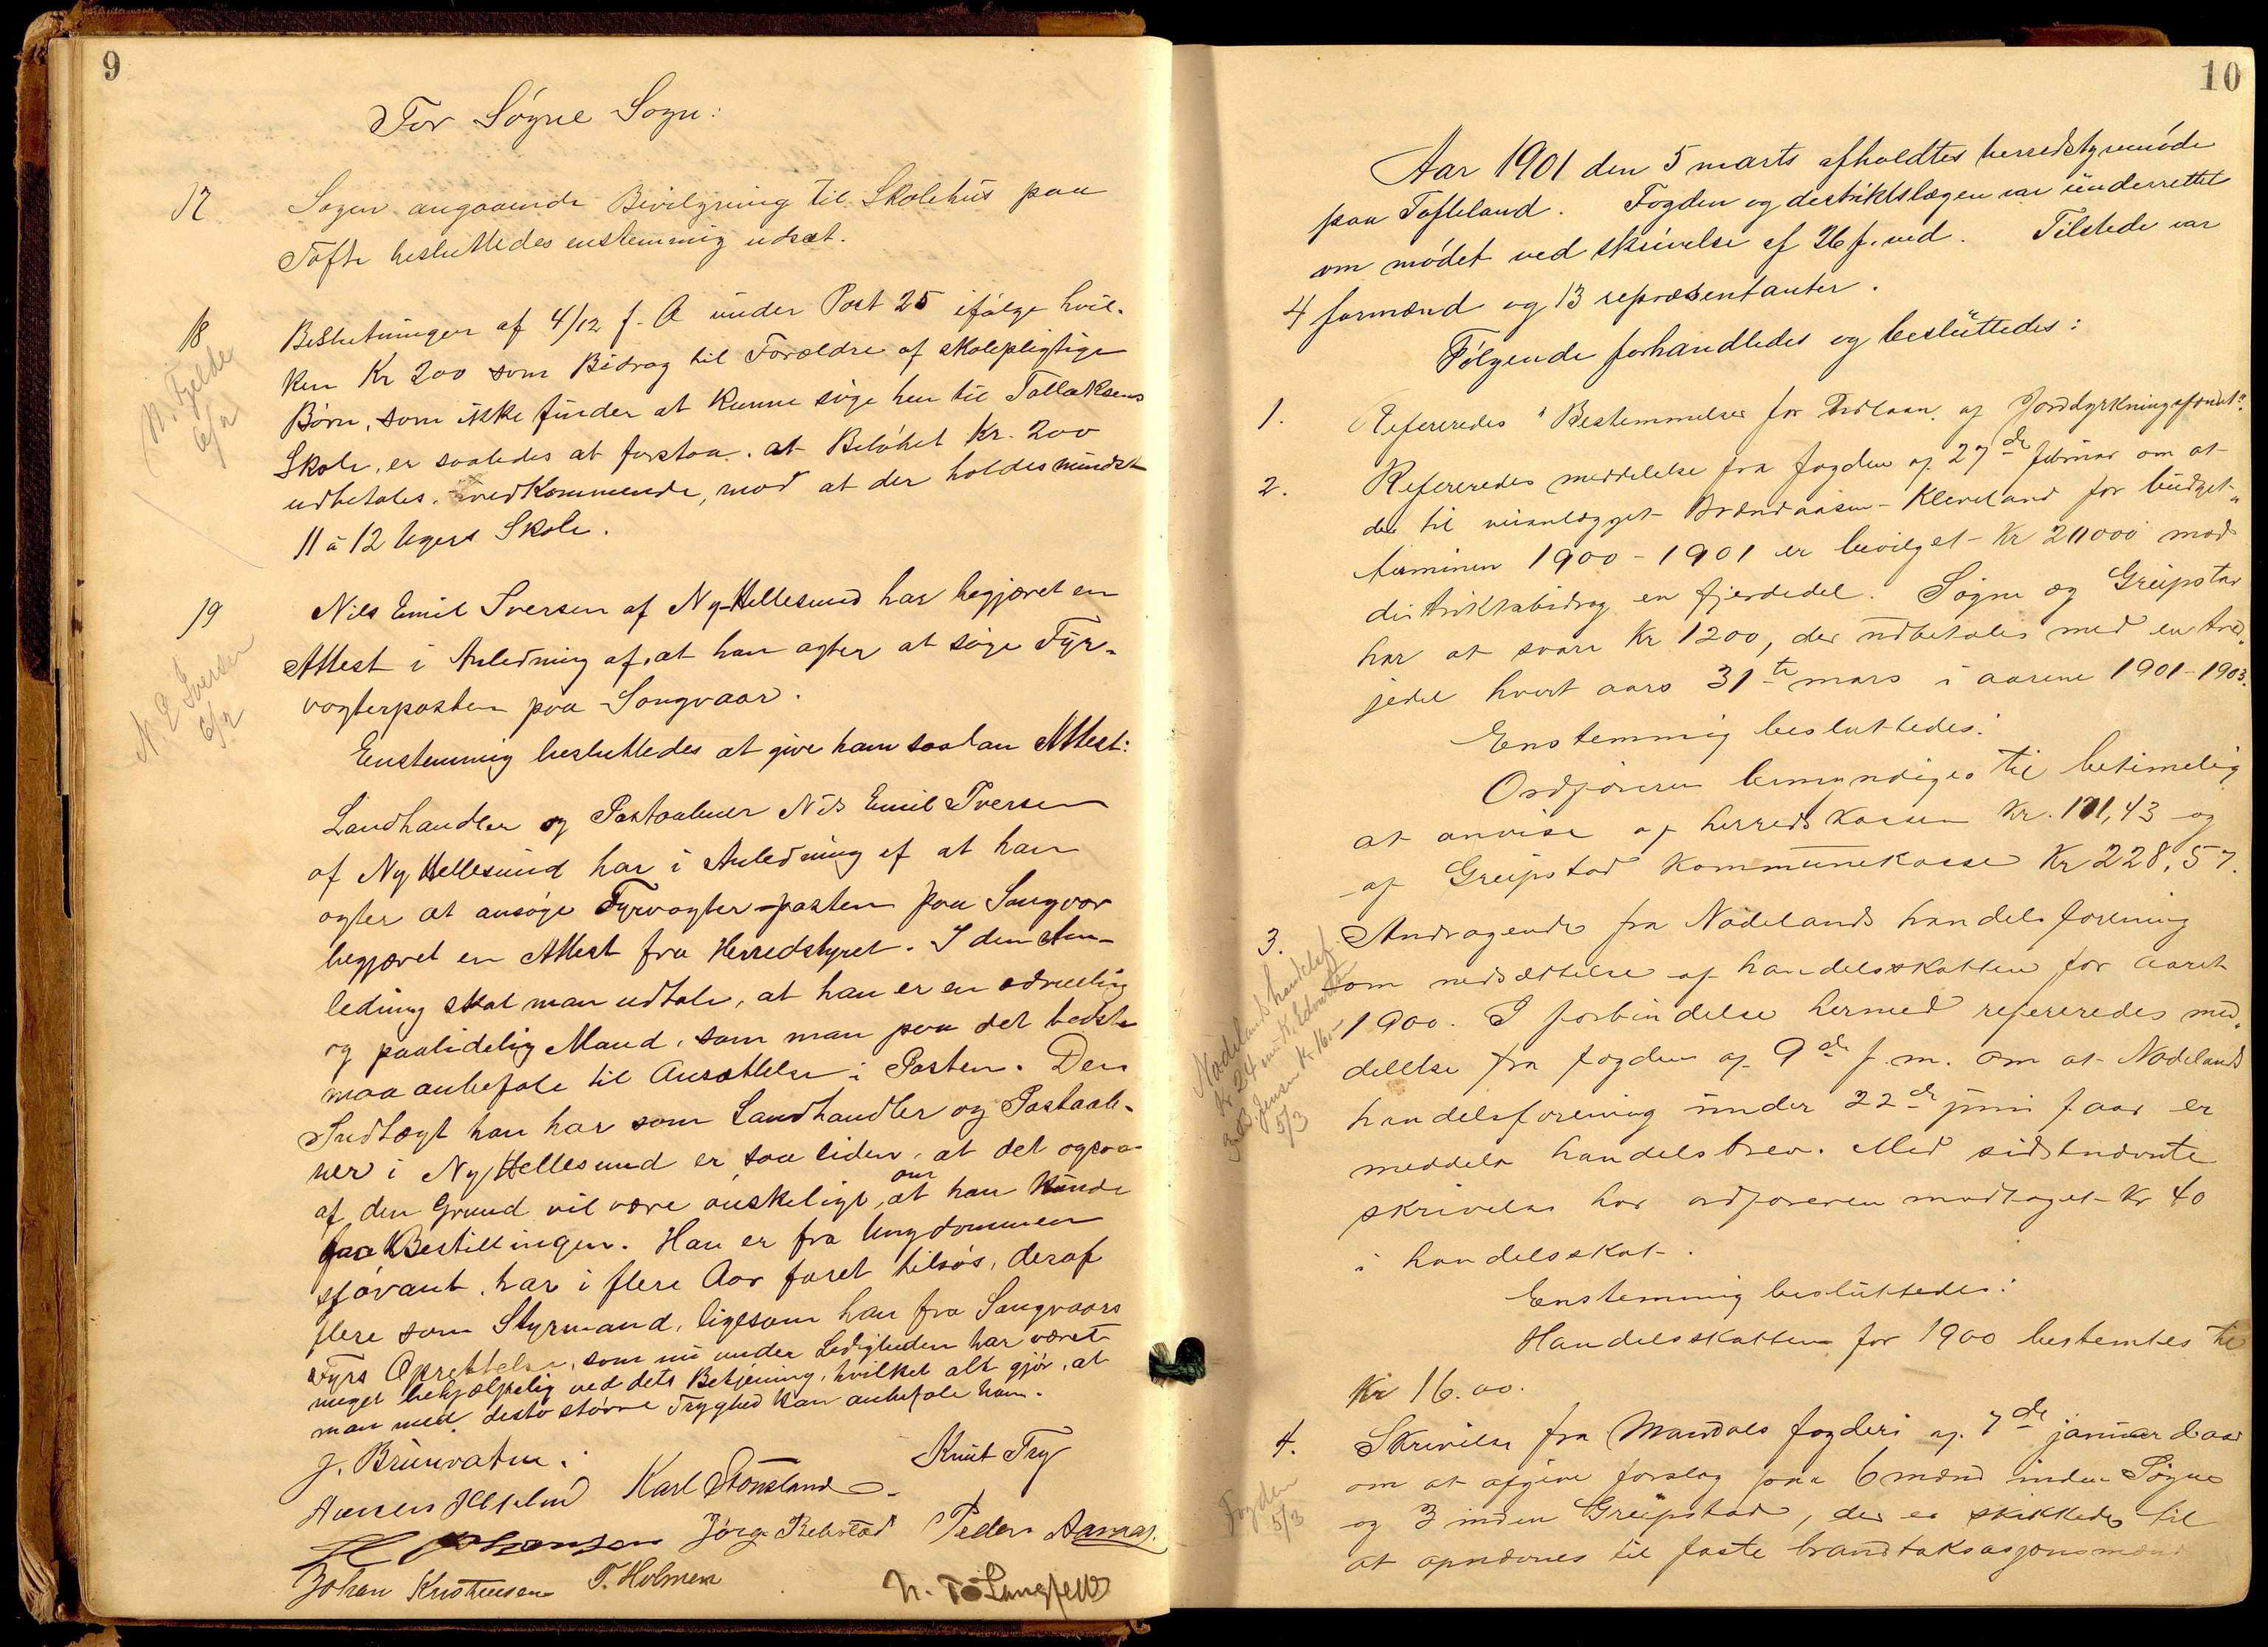 9
For Søgne Sogn:
17
Sagen angaaende Bevilgning til Skolehus paa
Tofte besluttedes enstemmig udsat.
18
N. Fjelde
6/2
Beslutningen af 4/12 f. A under Post 25 ifølge hvil-
ken Kr 200 som Bidrag til Forældre af skolepligtige
Børn, som ikke finder at kunne søge hen til Tallaksens
Skole, er saaledes at forstaa, at Beløbet Kr. 200
udbetales vedkommende, mod at der holdes mindst
11 à 12 Ugers Skole.
19
N. E Iversen
6/2
Nils Emil Iversen af Ny-Hellesund har begjæret en
Attest i Anledning af, at han agter at søge Fyr-
vogterposten paa Songvaar.
Enstemmig besluttedes at give ham saadan Attest:
Landhandler og Postaabner Nils Emil Iversen
af Ny Hellesund har i Anledning af at han
agter at ansøge Fyrvogter-posten paa Songvor
begjæret en Attest fra Herredstyret. I den An-
ledning skal man udtale, at han er en ædruelig
og paalidelig Mand, som man paa det bedste
maa anbefale til Ansættelse i Posten. Den
Indtægt han har som Landhandler og Postaab-
ner i Ny Hellesund er saa liden, at det ogsaa
af den Grund vil være ønskeligt, om at han kunde
faa Bestillingen. Han er fra Ungdommen
sjøvant, har i flere Aar faret tilsøs, deraf
flere som Styrmand, ligesom han fra Songvaars
Fyrs Oprettelse, som nu under Ledigheden har været
meget behjælpelig ved dets Betjening, hvilket alt gjør, at
man med desto større Tryghed kan anbefale ham.
J. Brunvatne.
Knut Try
Karl Stousland
Jørg. Rebstad Peder Aamas.
Johan Kristensen T. Holmen
N. To Langfeldt
10
Aar 1901 den 5 marts afholdtes herredstyremøde
paa Tofteland. Fogden og destriktslægen var underrettet
om mødet ved skrivelse af 26 f. md. Tilstede var
4 formænd og 13 repræsentanter.
Følgende forhandledes og besluttedes:
1.
Refereredes "Bestemmelser for Udlaan af Jorddyrkningsfondet".
2.
Refereredes meddelelse fra fogden af 27de februar om at
der til veianlægget Brændaasen-Kleveland for budget-
terminen 1900-1901 er bevilget Kr 21000 mod
distriktsbidrag en fjerdedel. Søgne og Greipstad
har at svare Kr 1200, der udbetales med en tred-
jedel hvert aars 31te mars i aarene 1901-1903.
Enstemmig besluttedes:
Ordføreren bemyndiges til betimelig
at anvise af herredskassen Kr. 171,43 og
af Greipstad kommunekasse Kr 228,57.
3.
Andragende fra Nodelands handelsforening
om nedsættelse af handelsskatten for aaret
1900. I forbindelse hermed refereredes med-
delelse fra fogden af 9de f. m. om at Nodelands
handelsforening under 22de juni f aar er
meddelt handelsbrev. Med sidstnævnte
skrivelse har ordføreren modtaget Kr 40
i handelsskat.
Enstemmig besluttedes:
Handelsskatten for 1900 bestemtes til
Kr 16.00.
Nodelands handelsf.
5/3
4.
Fogden
5/3
Skrivelse fra Mandals fogderi af 7de januar d aar
om at afgive forslag paa 6 mænd inden Søgne
og 3 inden Greipstad, der er skikkede til
at opnævnes til faste brandtaksasjonsmænd